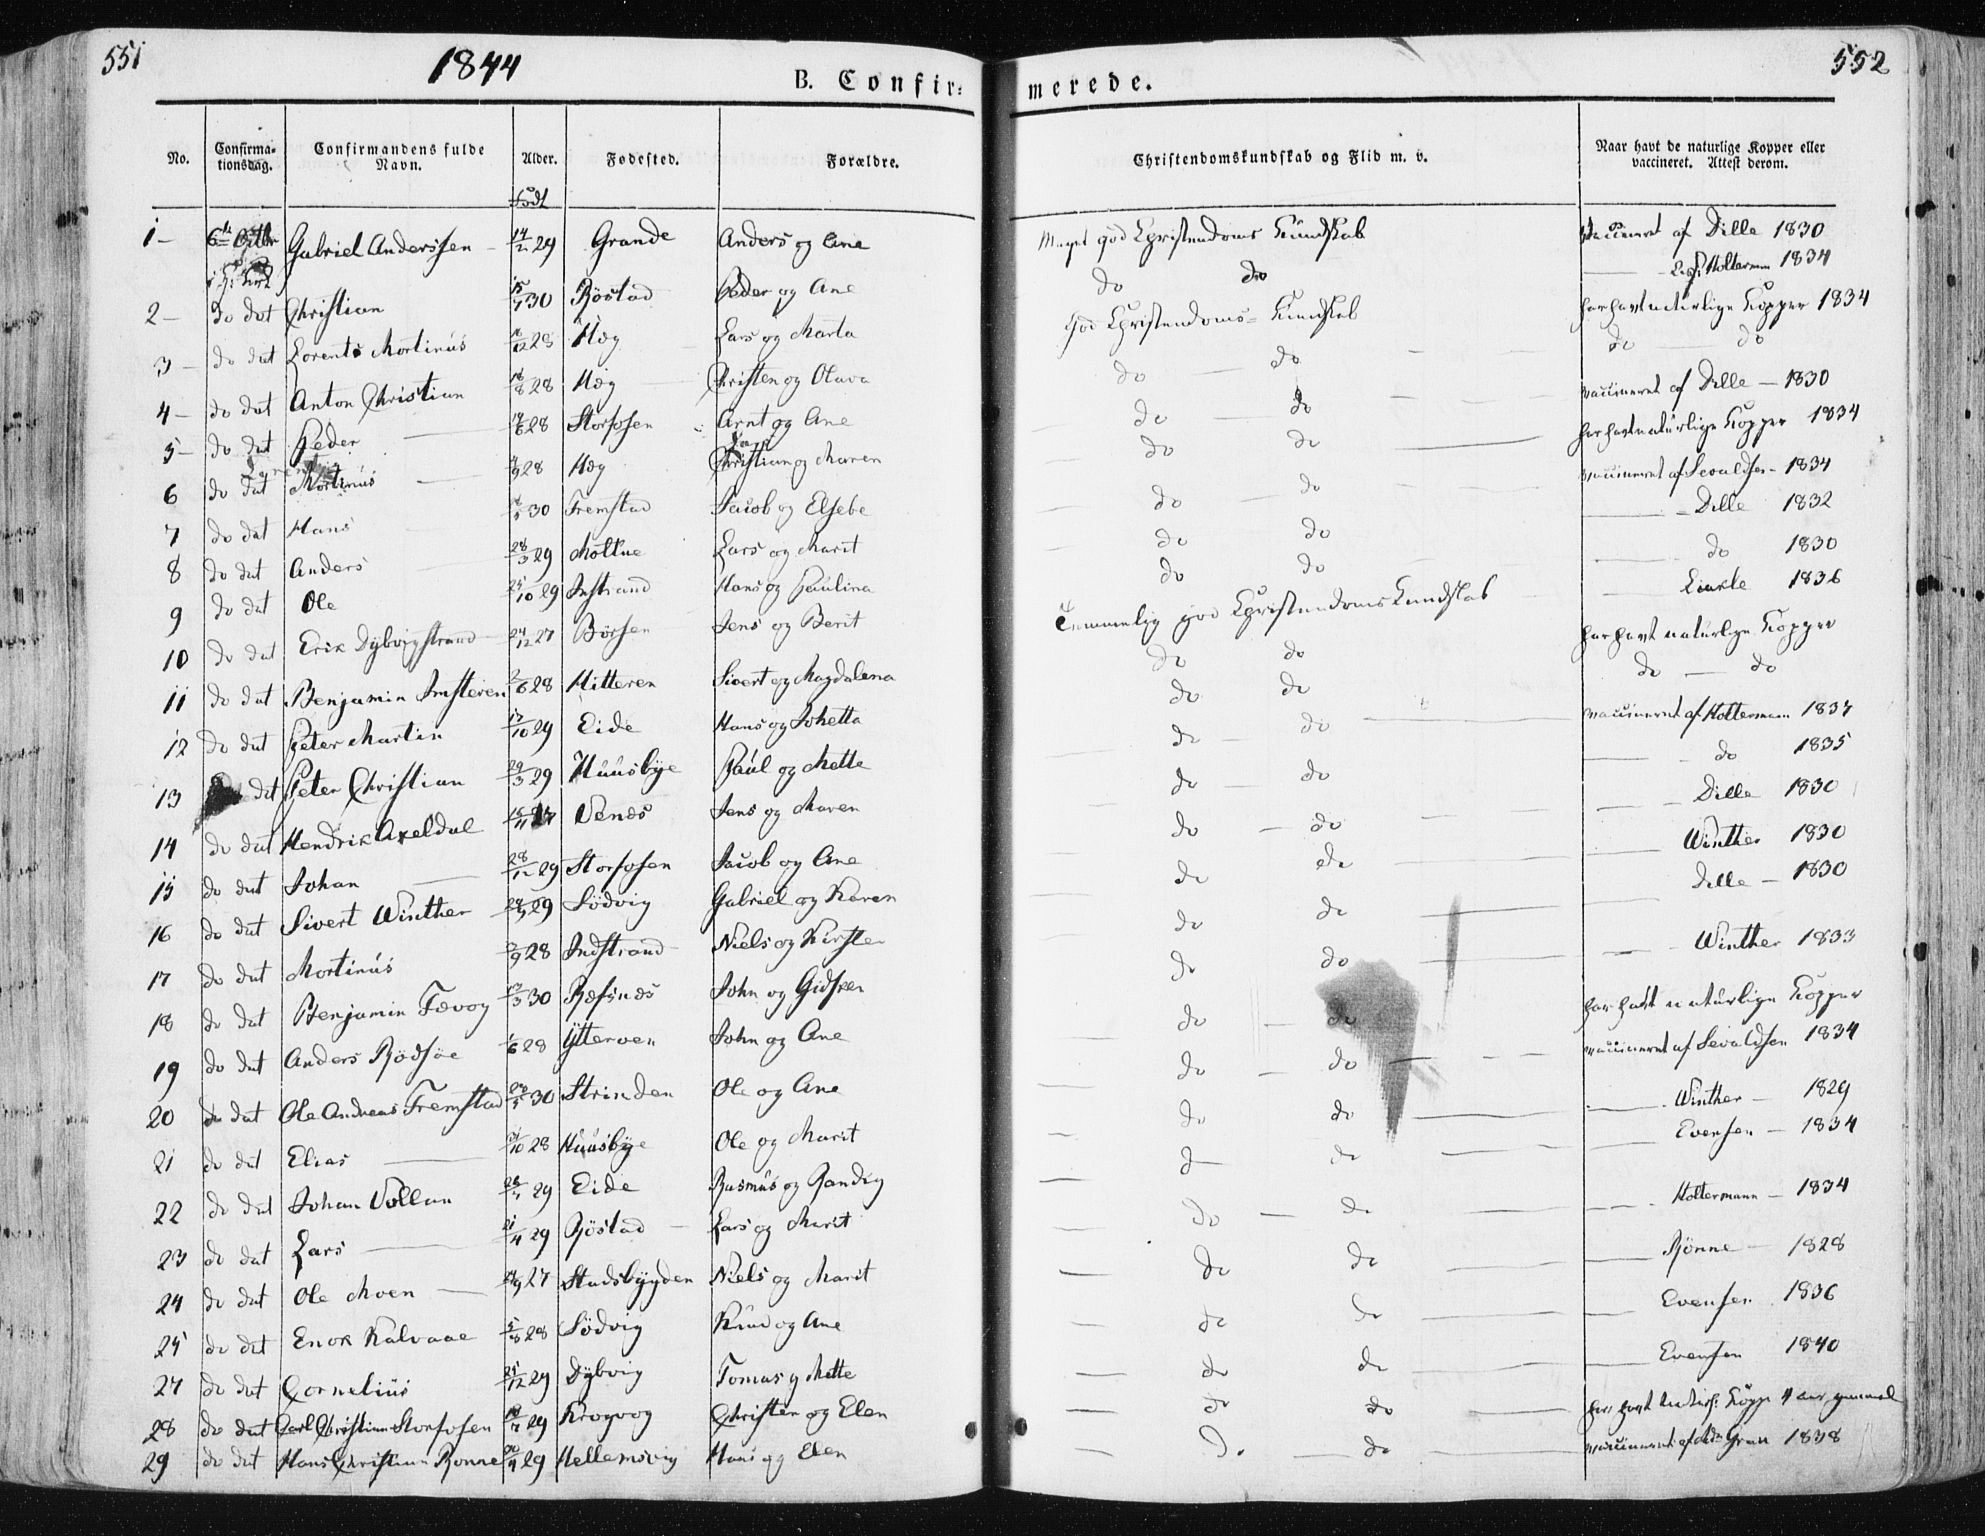 551
1844
B. Confir-
No.
Confirma-
tionsdag.
Confirmandens fulde
Navn.
Alder.
Fødested.
Forældre.
Født
1 - 6te Gabriel Anderssen - 14/2 29 Grande Anders og Ane
2 - do dat Christian 15/7 30 Röstad Peder og Ane
3 - do dat Lorents Martinús /12 28 Hæg Lars og Marta
4 - do dat Anton Christian 18/8 28 Hæg Christen og Olava
5 - do dat Peder 28 Storfosen Arnt og Ane
6 do dat Mortinús /9 28 Hæg Christian og Maren
7 do dat Hans 30 Fremstad Jacob og Elsebe
8 do dat Anders 28/3 29 Lars og Marit
9 do dat Ole 25/10 29 Instrand Hans og Paulina
10 do dat Erik Dybvigstrand 24/12 27 Börsen Jens og Berit
11 do dat Benjamin /6 28 Hitteren Sivert og Magdalena
12 do dat Peter Martin 17/10 29 Eide Hans og Johetta
13 dat Peter Christian 29/3 29 Húusbÿe Paúl og Mette
14 do dat Hendrik Axeldal /11 Venæs Jens og Maren
15 do dat Johan 28/12 29 Storfosen Jacob og Ane
16 do dat Sivert Winther 29 Södvig Gabriel og Karen
17 do dat Mortinús /9 28 Indstrand Niels og
18 do dat Benjamin Tævog /3 30 Ræfsnæs John og Gidsken
19 do dat Anders Rödsöe /6 28 Ÿtteröen John og Ane
20 do dat Ole Andreas Fremstad 30 Strinden Ole og Ane
21 do dat Elias /10 28 Húusbÿe Ole og Marit
22 do dat Johan Vollan 29 Eide Rasmús og Randig
23 do dat Lars 21/4 29 Röstad Lars og Marit
24 do dat Ole Moen /9 27 Stadsbÿgden Niels og Marit
25 do dat Enok Kalvaae 5/8 28 Södvig Knud og Ane
27 do dat Cornelius 25/12 29 Dÿbvig Tomas og Mette
28 do dat Carl Christian Storfosen 29 Krogvog Christen og Elen
29 do dat Hans Christian Rønne /4 29 Hellemsvig Hans og Elen
552
merede.
Christendomskundskab og Flid m. v.
Naar havt de naturlige Kopper eller
vaccineret. Attest derom.
Meget god Christendoms Kundskab vaccineret af Dille 1830
do do Holterman 1834
god Christendoms- Kundskab har havt naturlige Kopper 1834
do do do do
do do vaccineret af Dille - 1830
do do har havt naturlige Kopper 1834
do do vaccineret af Sevaldsen - 1834
do do Dille 1832
do do do 1830
Temmelig god Christendoms Kundskab 1836
do do har havt naturlige Kopper
do do do do
do do vaccineret af Holtermann 1837
do do do 1835
do do Dille 1830
do do Winther 1830
do do Dille - 1830
do do Winther 1833
do do har havt naturlige Kopper
do do vaccineret af Sevaldsen 1834
do do Winther - 1829
do do Evensen - 1834
do do Holtermann - 1834
do do Rønne - 1828
do do Evensen 1836
do do Evensen 1840
do do har havt Kopp 4 aar gammel
do do vaccineret af Gran 1838